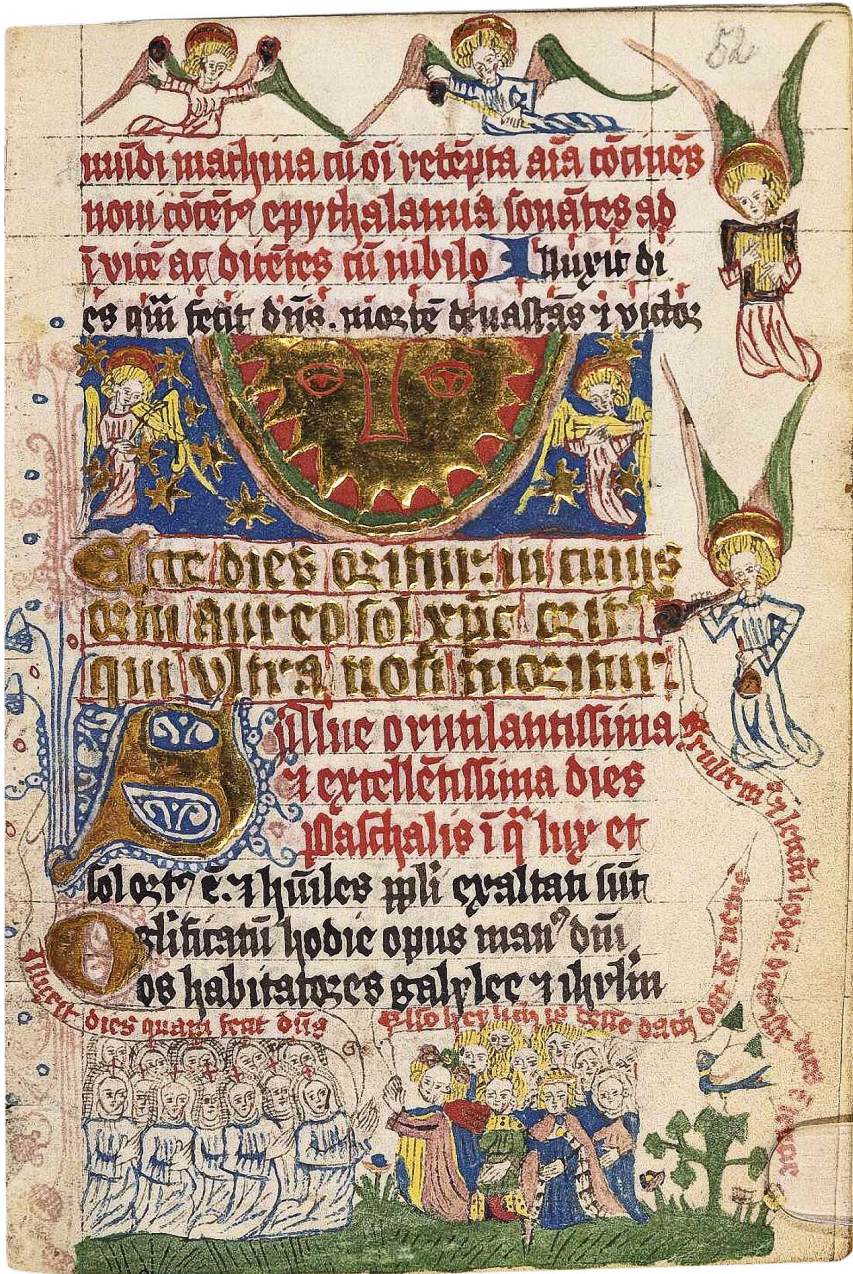 52
mūdi machina cū oī retēpta aīa cōcinēs
noui cōcēt᷒ epythalamia sonātes ad
īuicē ac dicētes cū iubilo Illuxit di
es quā fecit dn̄s. mortē deuastās ⁊ victor
Ecce dies oritur: in cuius
ortu aureo sol xp̄c erit
qui vltra non moritur:
Salue o rutilantissima
⁊ excellētissima dies
Paschalis ī q̄ lux et
sol ort᷒ ē. ⁊ hūiles ppli exaltati sūt
glificatū hodie opus man᷒ dn̄i
os habitatores galylee ⁊ ihrlm
Illuxit dies quam fecit dn̄s
Also heylich is desse dach dat
hodie